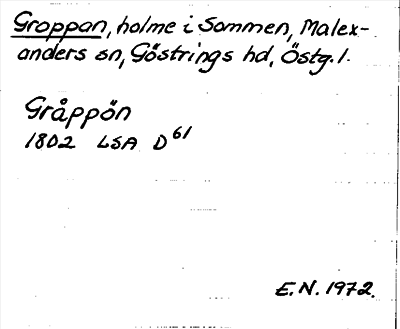 Groppan, holme i Sommen, Malex-
anders sn, Göstrings hd, Östg. l.
Gråppön
1802 LSA D61
E.N. 1972.